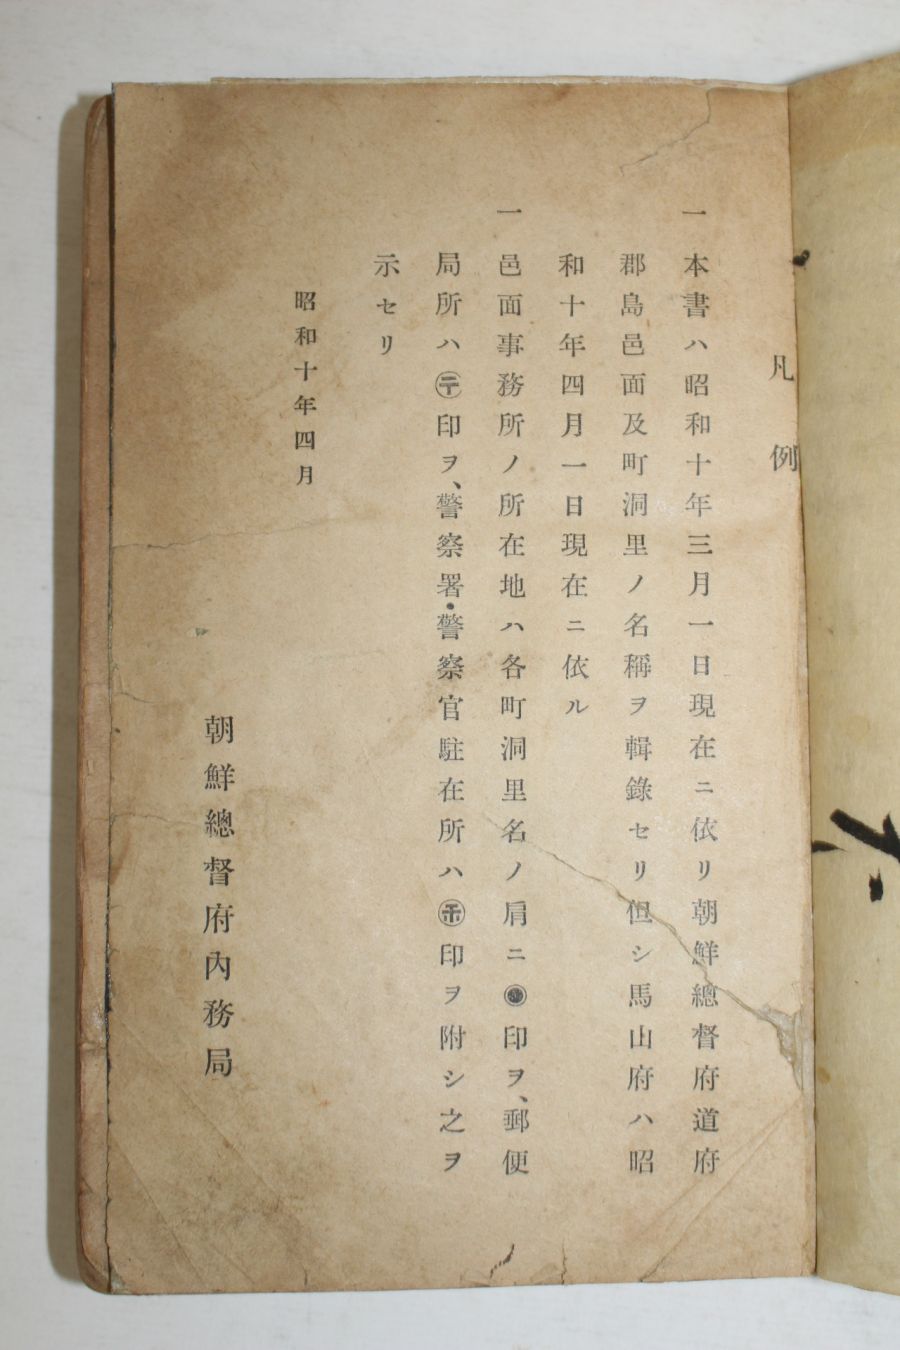 凡例
一 本書ハ昭和十年三月一日現在ニ依リ朝鮮總督府道府
郡島邑面及町洞里ノ名稱ヲ輯錄セリ但シ馬山府ハ昭
和十年四月一日現在ニ依ル
一 邑面事務所ノ所在地ハ各町洞里名ノ肩ニ◉印ヲ、郵便
局所ハ〶印ヲ、警察署・警察官駐在所ハ印ヲ附シ之ヲ
示セリ
昭和十年四月
朝鮮總督府內務局